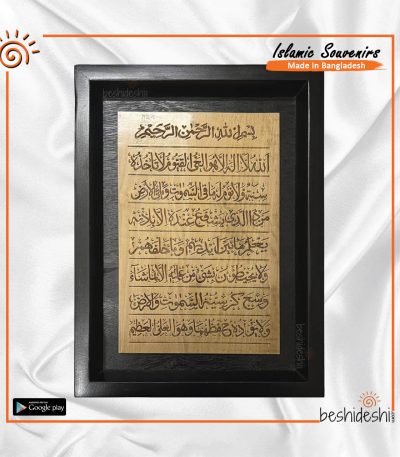 Islamic Souvenirs
Made in Bangladesh
beshideshi
بسم الله الرحمن الرحيم
الله لا اله الا هو الحي القيوم لا تأخذه
سنة ولا نوم له ما في السموت وما في الأرض
من ذا الذي يشفع عنده الا باذنه
يعلم ما بين ايديهم وما خلفهم
ولا يحيطون بشئ من علمه الا بما شاء
وسع كرسيه السموت والأرض
ولا يؤده حفظهما وهو العلي العظيم
beshideshi
Google play
beshideshi